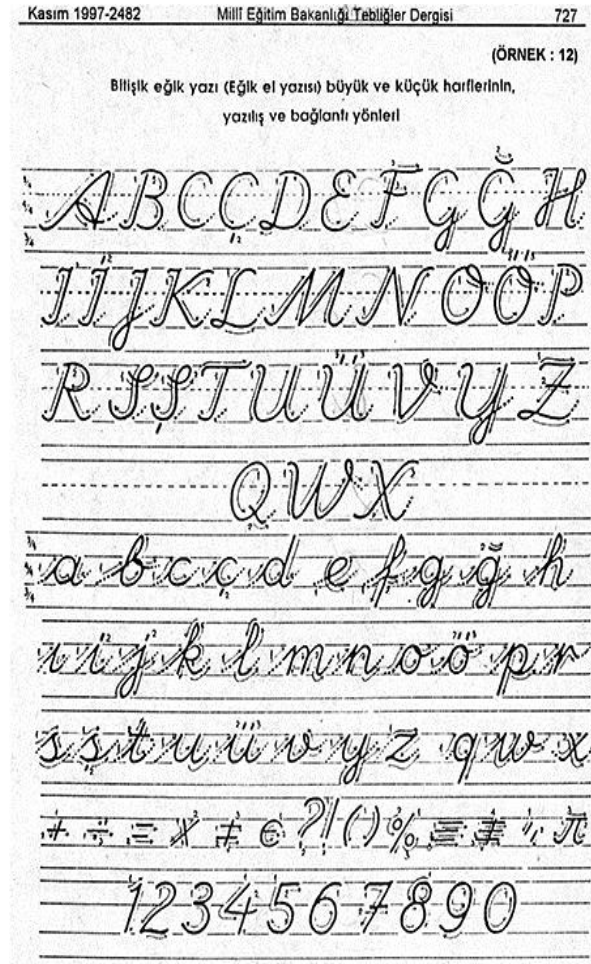 Kasım 1997-2482 Millî Eğitim Bakanlığı Tebliğler Dergisi 727
(ÖRNEK : 12)
Bitişik eğik yazı (Eğik el yazısı) büyük ve küçük harflerinin,
yazılış ve bağlantı yönleri
A B C Ç D E F G Ğ H
I İ J K L M N O Ö P
R S Ş T U Ü V Y Z
Q W X
a b c ç d e f g ğ h
ı i j k l m n o ö p r
s ş t u ü v y z q w x
+ ÷ = X ≠ € ? ! ( ) % ≡ ≢ " π
1 2 3 4 5 6 7 8 9 0